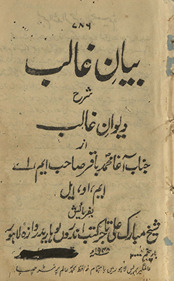 ۷۸۶
بیان غالب
شرح
دیوان غالب
از
جناب آغا محمد باقر صاحب ایم، اے
ایم، او، ایل
بفرمائش
شیخ مبارک علی تاجر کتب اندرون لوہاری دروازہ لاہور